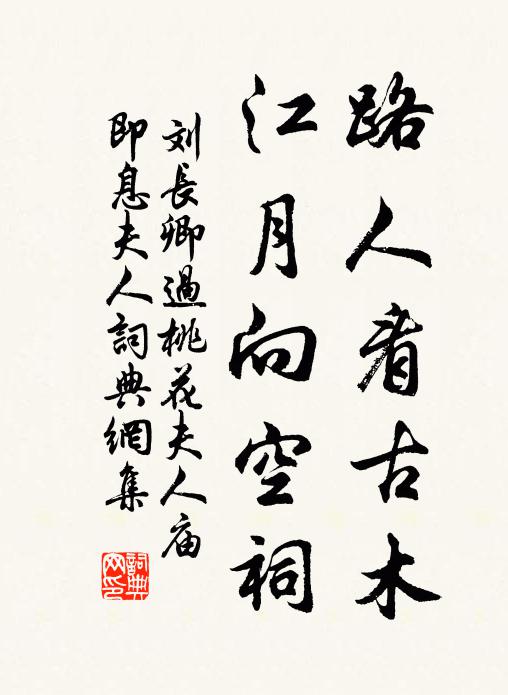 路人看古木
江月向空祠
刘長卿過桃花夫人庙
即息夫人詞典網集
詞典网印